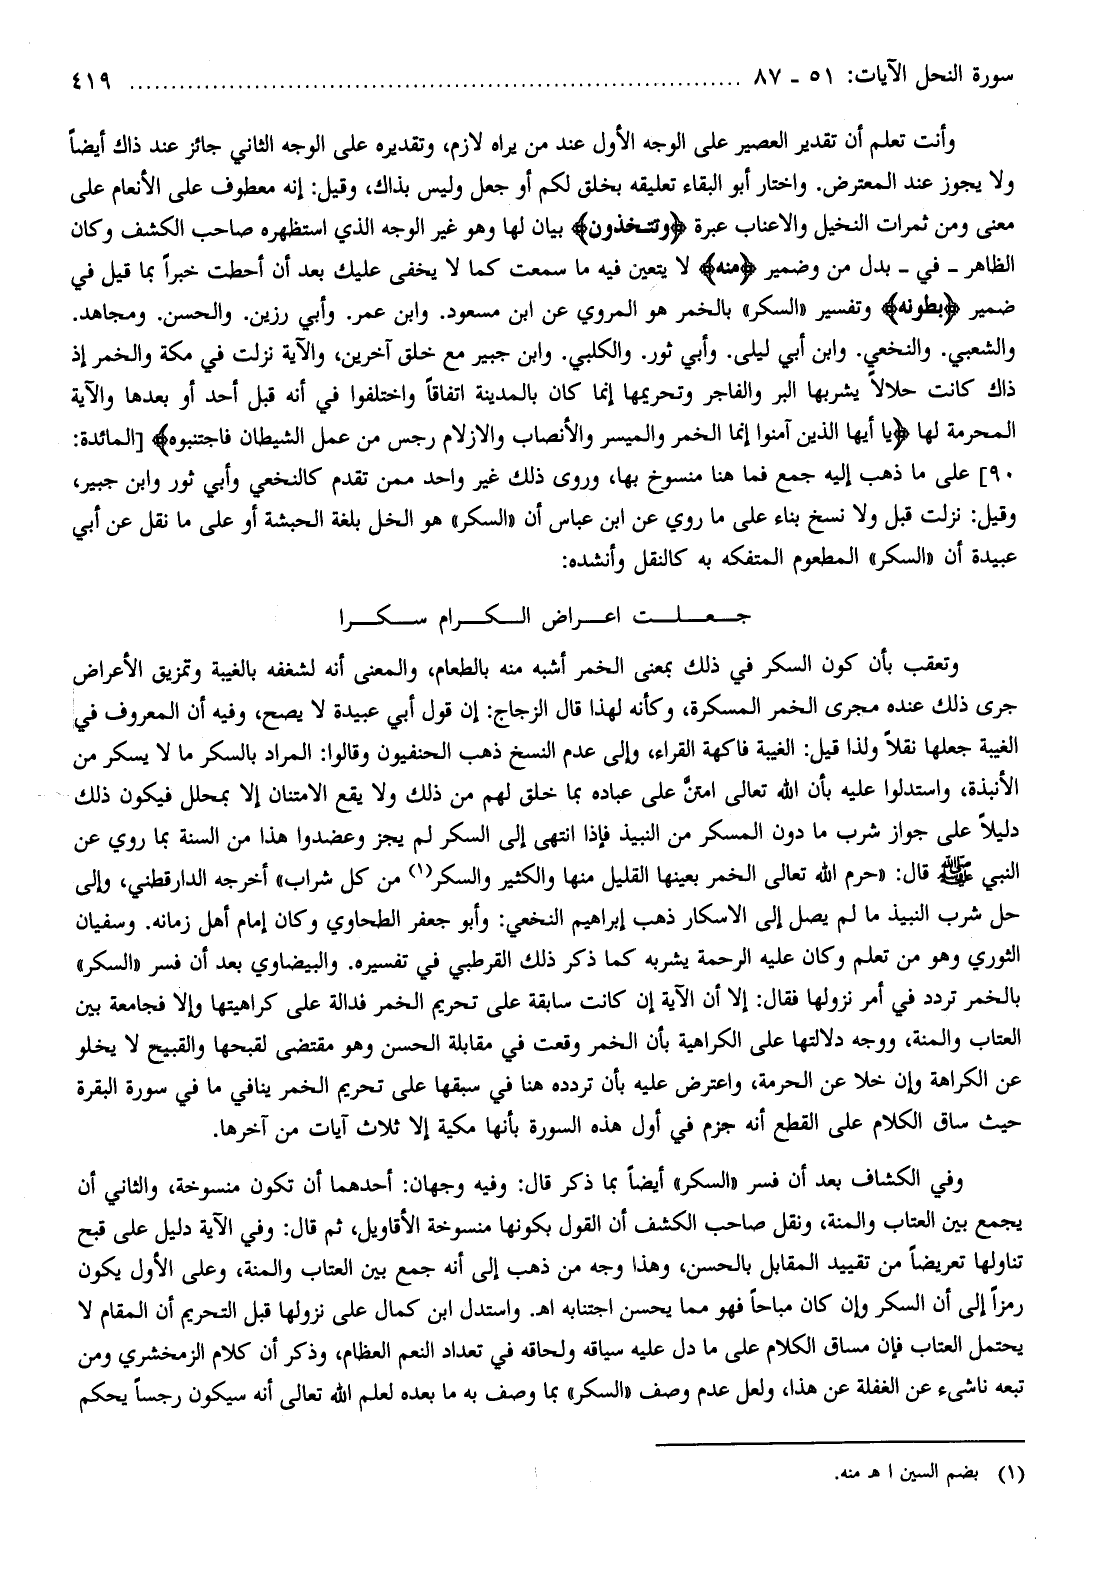 سورة النحل الآيات: ٥١ - ٨٧ ................................................ ٤١٩
وأنت تعلم أن تقدير العصير على الوجه الأول عند من يراه لازم، وتقديره على الوجه الثاني جائز عند ذاك أيضاً
ولا يجوز عند المعترض. واختار أبو البقاء تعليقه بخلق لكم أو جعل وليس بذاك، وقيل: إنه معطوف على الأنعام على
معنى ومن ثمرات النخيل والاعناب عبرة ﴿وتتخذون﴾ بيان لها وهو غير الوجه الذي استظهره صاحب الكشف وكان
الظاهر - في - بدل من وضمير ﴿منه﴾ لا يتعين فيه ما سمعت كما لا يخفى عليك بعد أن أحطت خبراً بما قيل في
ضمير ﴿بطونه﴾ وتفسير «السكر» بالخمر هو المروي عن ابن مسعود. وابن عمر. وأبي رزين. والحسن. ومجاهد.
والشعبي. والنخعي. وابن أبي ليلى. وأبي ثور. والكلبي. وابن جبير مع خلق آخرين، والآية نزلت في مكة والخمر إذ
ذاك كانت حلالاً يشربها البر والفاجر وتحريمها إنما كان بالمدينة اتفاقاً واختلفوا في أنه قبل أحد أو بعدها والآية
المحرمة لها ﴿يا أيها الذين آمنوا إنما الخمر والميسر والأنصاب والازلام رجس من عمل الشيطان فاجتنبوه﴾ [المائدة:
٩٠] على ما ذهب إليه جمع فما هنا منسوخ بها، وروى ذلك غير واحد ممن تقدم كالنخعي وأبي ثور وابن جبير،
وقيل: نزلت قبل ولا نسخ بناء على ما روي عن ابن عباس أن «السكر» هو الخل بلغة الحبشة أو على ما نقل عن أبي
عبيدة أن «السكر» المطعوم المتفكه به كالنقل وأنشده:
جعلت اعراض الكرام سكرا
وتعقب بأن كون السكر في ذلك بمعنى الخمر أشبه منه بالطعام، والمعنى أنه لشغفه بالغيبة وتمزيق الأعراض
جرى ذلك عنده مجرى الخمر المسكرة، وكأنه لهذا قال الزجاج: إن قول أبي عبيدة لا يصح، وفيه أن المعروف في
الغيبة جعلها نقلاً ولذا قيل: الغيبة فاكهة القراء، وإلى عدم النسخ ذهب الحنفيون وقالوا: المراد بالسكر ما لا يسكر من
الأنبذة، واستدلوا عليه بأن الله تعالى امتنَّ على عباده بما خلق لهم من ذلك ولا يقع الامتنان إلا بمحلل فيكون ذلك
دليلاً على جواز شرب ما دون المسكر من النبيذ فإذا انتهى إلى السكر لم يجز وعضدوا هذا من السنة بما روي عن
النبي ﷺ قال: «حرم الله تعالى الخمر بعينها القليل منها والكثير والسكر(١) من كل شراب» أخرجه الدارقطني، وإلى
حل شرب النبيذ ما لم يصل إلى الاسكار ذهب إبراهيم النخعي: وأبو جعفر الطحاوي وكان إمام أهل زمانه. وسفيان
الثوري وهو من تعلم وكان عليه الرحمة يشربه كما ذكر ذلك القرطبي في تفسيره. والبيضاوي بعد أن فسر «السكر»
بالخمر تردد في أمر نزولها فقال: إلا أن الآية إن كانت سابقة على تحريم الخمر فدالة على كراهيتها وإلا فجامعة بين
العتاب والمنة، ووجه دلالتها على الكراهية بأن الخمر وقعت في مقابلة الحسن وهو مقتضى لقبحها والقبيح لا يخلو
عن الكراهة وإن خلا عن الحرمة، واعترض عليه بأن تردده هنا في سبقها على تحريم الخمر ينافي ما في سورة البقرة
حيث ساق الكلام على القطع أنه جزم في أول هذه السورة بأنها مكية إلا ثلاث آيات من آخرها.
وفي الكشاف بعد أن فسر «السكر» أيضاً بما ذكر قال: وفيه وجهان: أحدهما أن تكون منسوخة، والثاني أن
يجمع بين العتاب والمنة، ونقل صاحب الكشف أن القول بكونها منسوخة الأقاويل، ثم قال: وفي الآية دليل على قبح
تناولها تعريضاً من تقييد المقابل بالحسن، وهذا وجه من ذهب إلى أنه جمع بين العتاب والمنة، وعلى الأول يكون
رمزاً إلى أن السكر وإن كان مباحاً فهو مما يحسن اجتنابه اهـ. واستدل ابن كمال على نزولها قبل التحريم أن المقام لا
يحتمل العتاب فإن مساق الكلام على ما دل عليه سياقه ولحاقه في تعداد النعم العظام، وذكر أن كلام الزمخشري ومن
تبعه ناشىء عن الغفلة عن هذا، ولعل عدم وصف «السكر» بما وصف به ما بعده لعلم الله تعالى أنه سيكون رجساً يحكم
(١) بضم السين ا هـ منه.